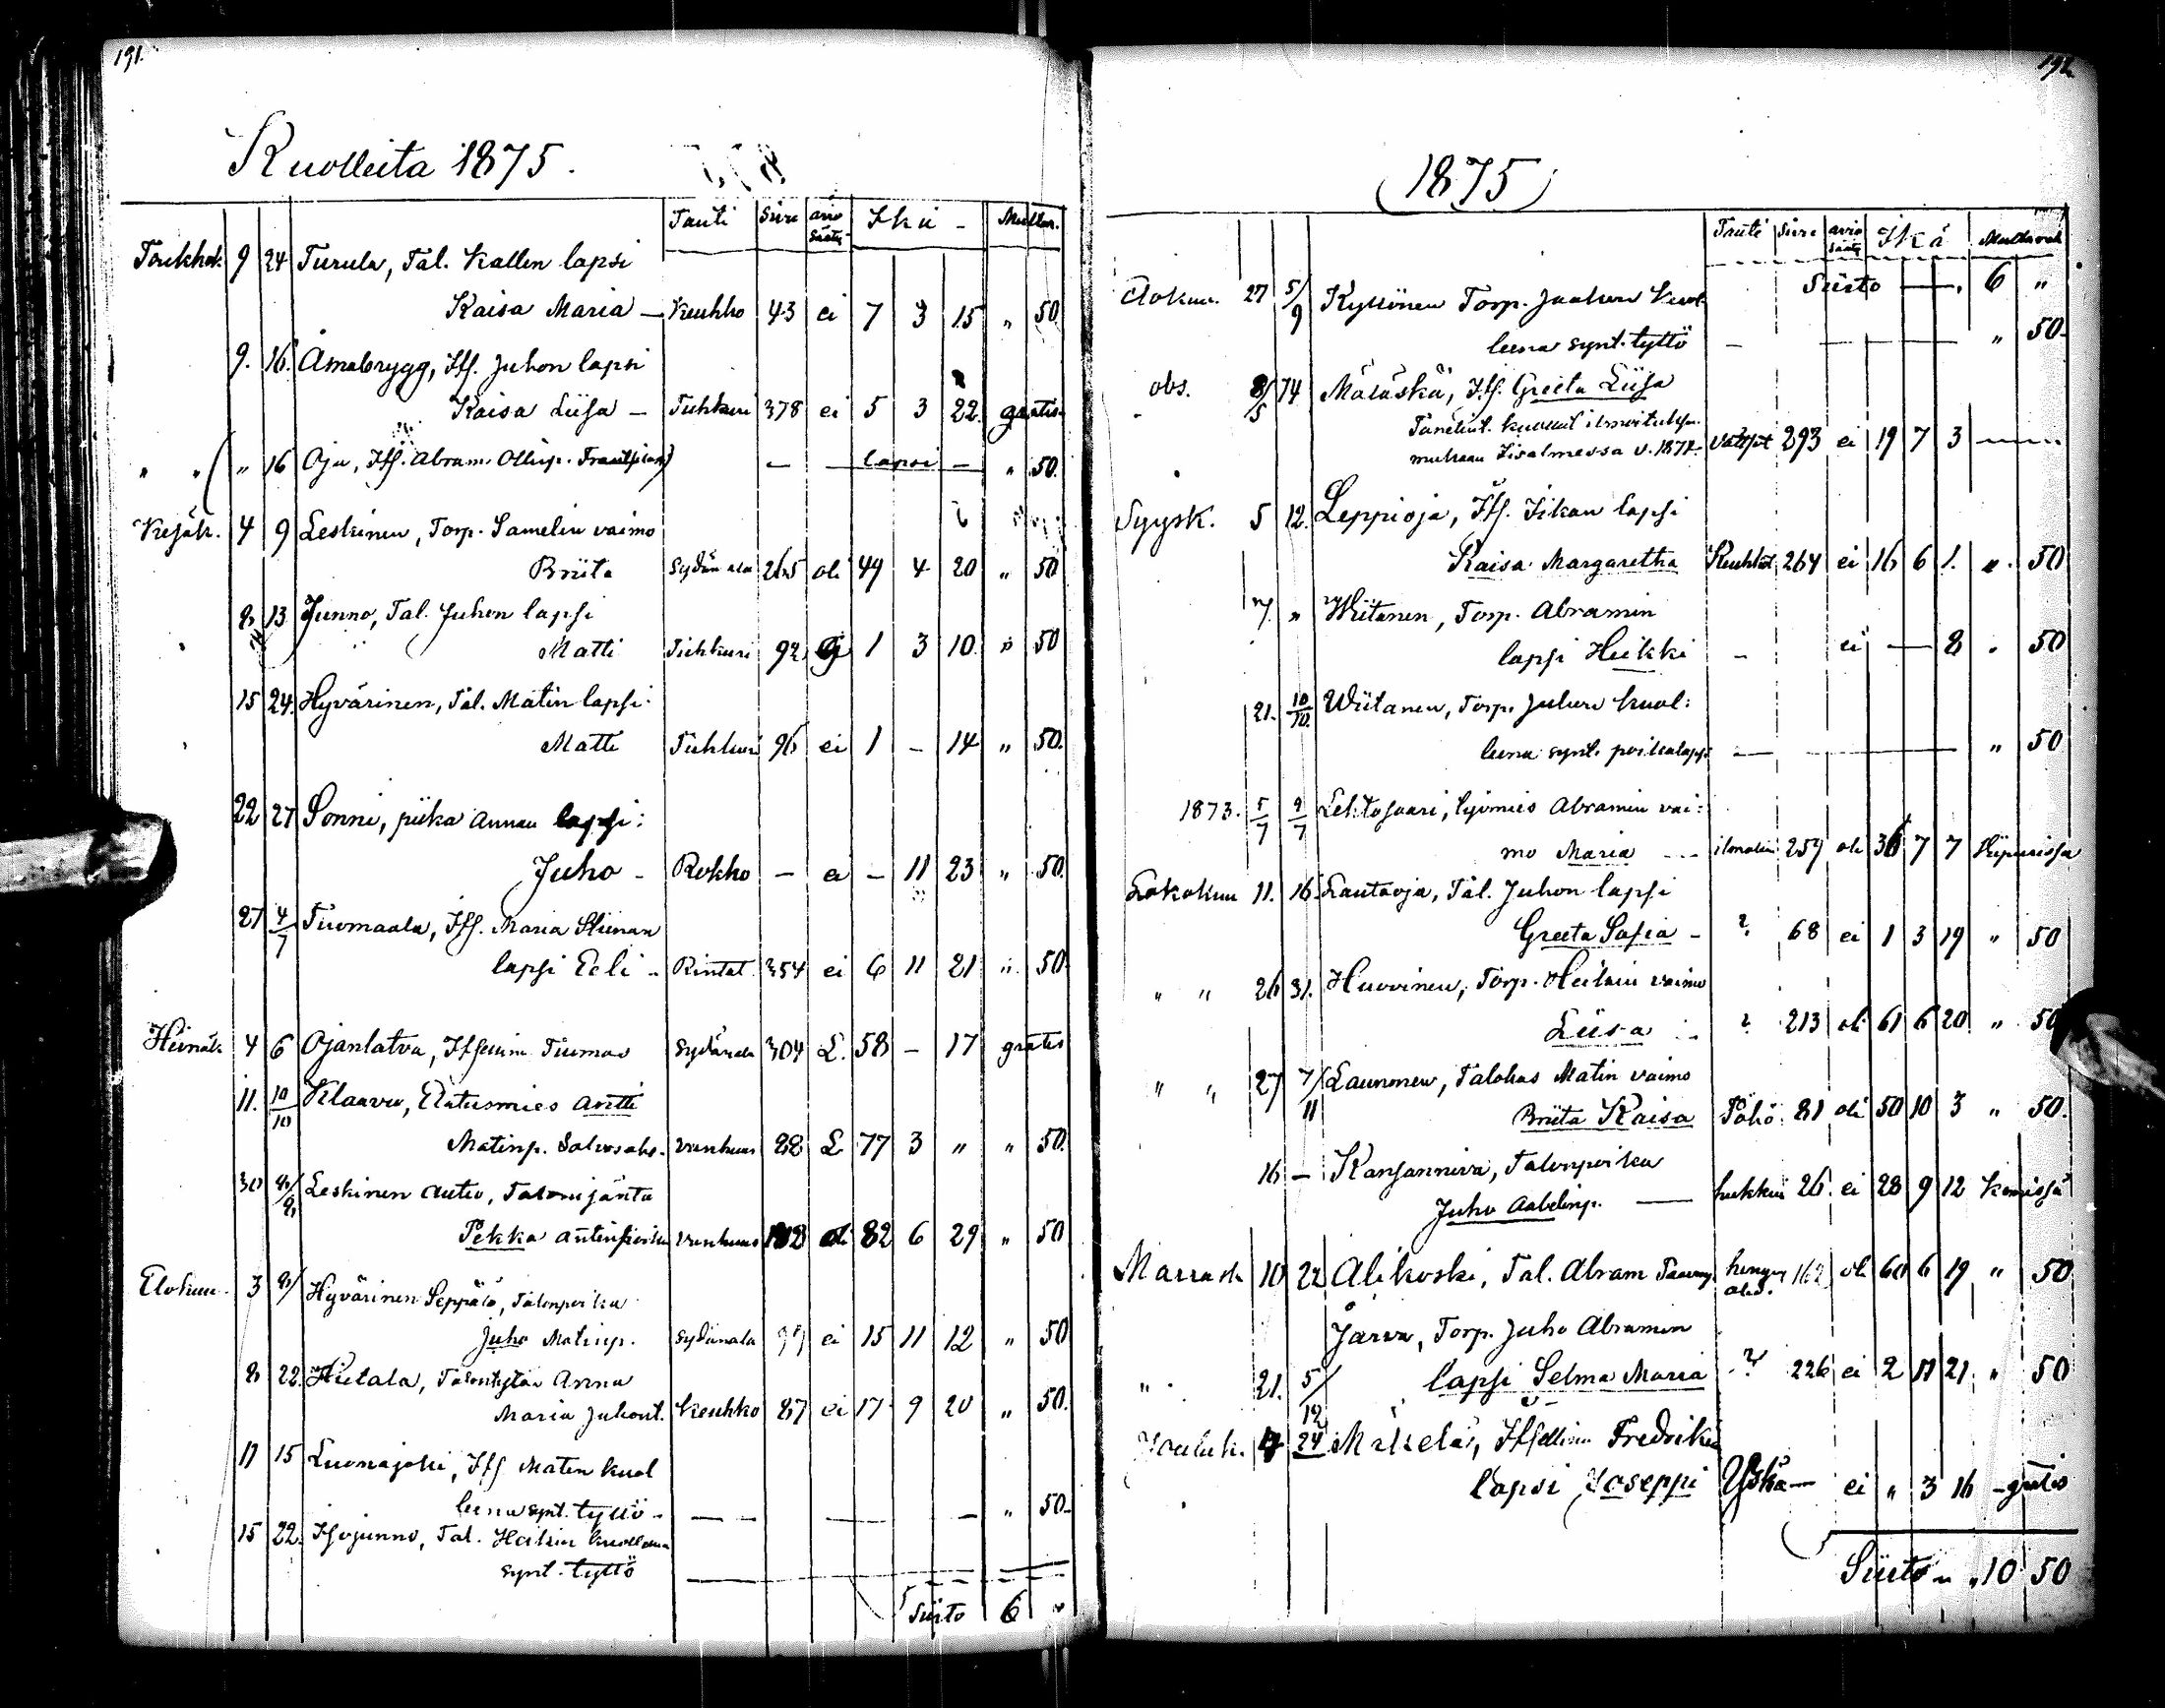 191.
Kuolleita 1875.
Tauti Sivu avio sääty Ikä - Multar.
Toukhok. 9 24 Turula, Tal. Kallen lapsi
Kaisa Maria — Keuhko 43 ei 7 3 15 „ 50
9. 16. Åmabrygg, Its. Juhon lapsi
Kaisa Liisa — Tuhkuri 378 ei 5 3 22 gratis.
„ „ ( „ 16 Oja, Its. Abram Ollinp. ) — — lapsi — „ 50.
Kesäk. 4 9 Leskinen, Torp. Samelin vaimo
Briita Sydän ala 265 oli 49 4 20 „ 50
8 13 Junno, Tal. Juhon lapsi
Matti Tuhkuri 92 ei 1 3 10 „ 50
15 24. Hyvärinen, Tal. Matin lapsi
Matti Tuhkuri 96 ei 1 - 14 „ 50.
22 27 Sonni, piika Annan lapsi:
Juho - Rokko — ei - 11 23 „ 50.
27 4/7 Tuomaala, Its. Maria Stiinan
lapsi Eeli - Rintat. 354 ei 6 11 21 „ 50
Heinäk 4 6 Ojanlatva, Itsellinen Tuomas Sydänala 304 L. 58 - 17 gratis
11. 10/10 Klaavu, Antti
Matinp. vanhuus 88 L 77 3 „ „ 50.
30 8/8 Leskinen Autio, Talonisäntä
Pekka Antinpoika vanhuus oli 82 6 29 „ 50
Elokuu. 3 8/ Hyvärinen Seppälä, Talonpoika
Juho Matinp. Sydänala ei 15 11 12 „ 50
8 22. Hietala, Talontytär Anna
Maria Juhont. Keuhko 87 ei 17 9 20 „ 50.
11 15 Luonajoki, Its Matin kuol
leena synt. tyttö - — — — — „ 50-
15 22. Isojunno, Tal. Heikin kuolleena
synt. tyttö —
Siirto 6 „
192.
(1875)
Tauti Sivu avio sääty Ikä Multarah
Siirto — 6 „
Elokuu. 27 5/9 Kyllönen Torp. Juhon kuol
leena synt. tyttö — — „ 50.
obs. 8/5 74 Määskä, Its. Greeta Liisa
Tanelint. kuollut ilmoituksen
mukaan Iisalmessa v. 1874- 293 ei 19 7 3 —
Syysk. 5 12. Leppioja, Its. Iikan lapsi
Kaisa Margaretha Keuhko 264 ei 16 6 1. „. 50
7. „ Wiitanen, Torp. Abramin
lapsi Heikki — ei — 8 „ 50
21. 10/10. Wiitanen, Torp. Juhon kuol:
leena synt. poikalapsi — — „ 50
1873. 5/7 9/7 Lehtosaari, työmies Abramin vai:
mo Maria — 259 oli 36 7 7 Kiipurissa
Lokakuu 11. 16. Rautaoja, Tal. Juhon lapsi
Greeta Sofia - ? 68 ei 1 3 19 „ 50
„ „ 26 31. Huovinen, Torp. Heikin vaimo
Liisa ? 213 oli 61 6 20 „ 50
„ „ 27 7/11 Launonen, Talokas Matin vaimo
Briita Kaisa Pöhö 81 oli 50 10 3 „ 50.
16 — Kansanniva, Talonpoika
Juho Aabelinp. — hukkui 26. ei 28 9 12 Kemissä
Marrask 10 22 Alikoski, Tal. Abram hengen ahd. 162 oli 60 6 19 „ 50
Jarva, Torp. Juho Abramin
„ . 21. 5/12 lapsi Selma Maria ? 226 ei 2 11 21 „ 50
Jouluk. 17 24 Mäkelä, Itsellinen Fredrikin
lapsi Joseppi Yskä — ei „ 3 16 - gratis
Siirto „ „ 10 50